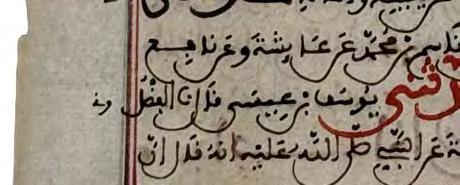 قاسم بن محمد عن عايشة وعن نافع
دثنى يوسف بن عيسى قال نا الفضل
عن النبي صلى الله عليه انه قال ان